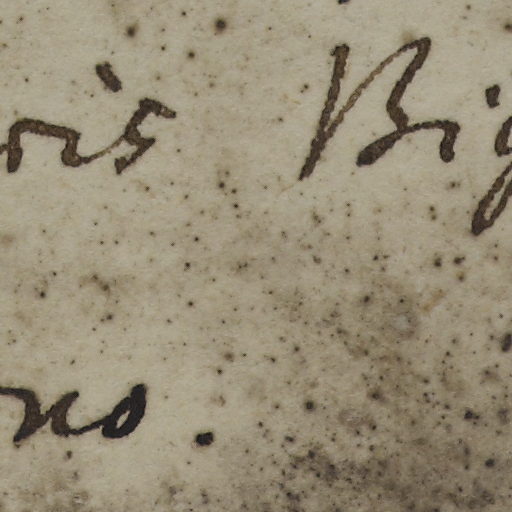 ris Big
no.